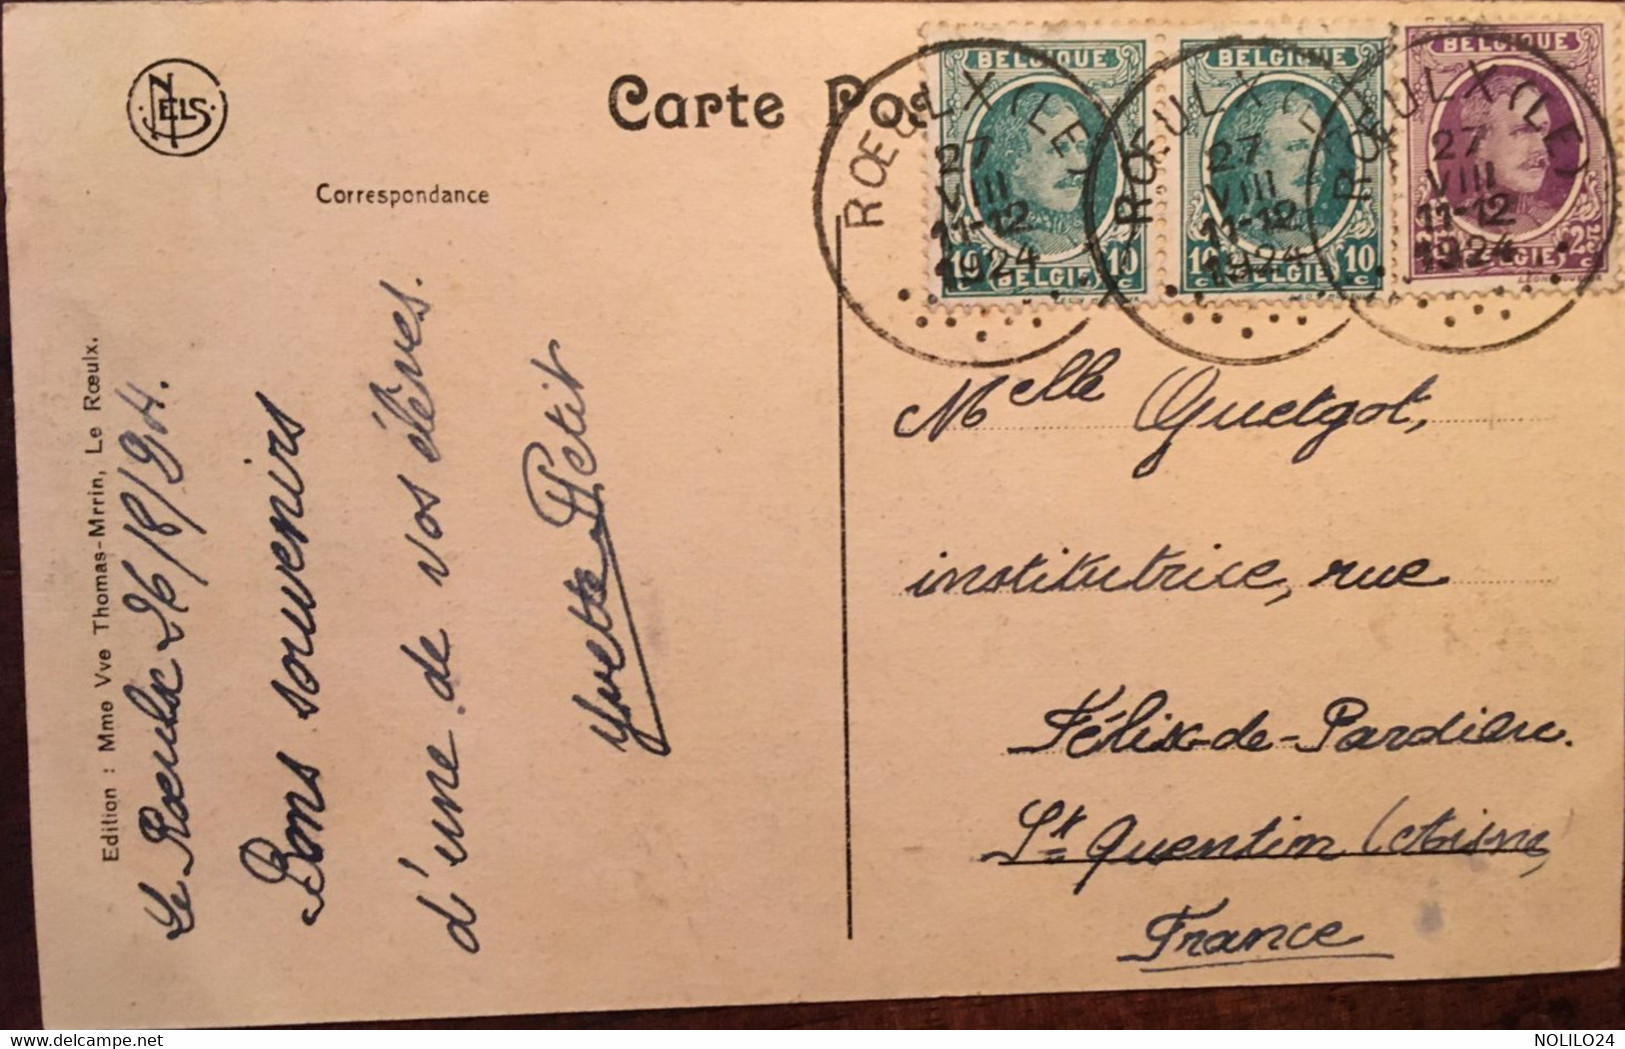 NELS
Carte Pos
Correspondance
Edition : Mme Vve Thomas-Mrrin, Le Rœulx.
Le Roeulx 26/8/924.
Bons souvenirs
d'une de vos élèves.
Yvette Petit
BELGIQUE
10 c (BELGIË) 10 c
BELGIQUE
10 c BELGIË) 10 c
BELGIQUE
25 c BELGIE) 25 c
RŒULX (LE)
27
VIII
11-12
1924
RŒULX (LE)
27
VIII
11-12
1924
RŒULX (LE)
27
VIII
11-12
1924
Melle Quetgot,
institutrice, rue
Félix-de-Pardieu.
St Quentin (Aisne)
France
NOLILO24